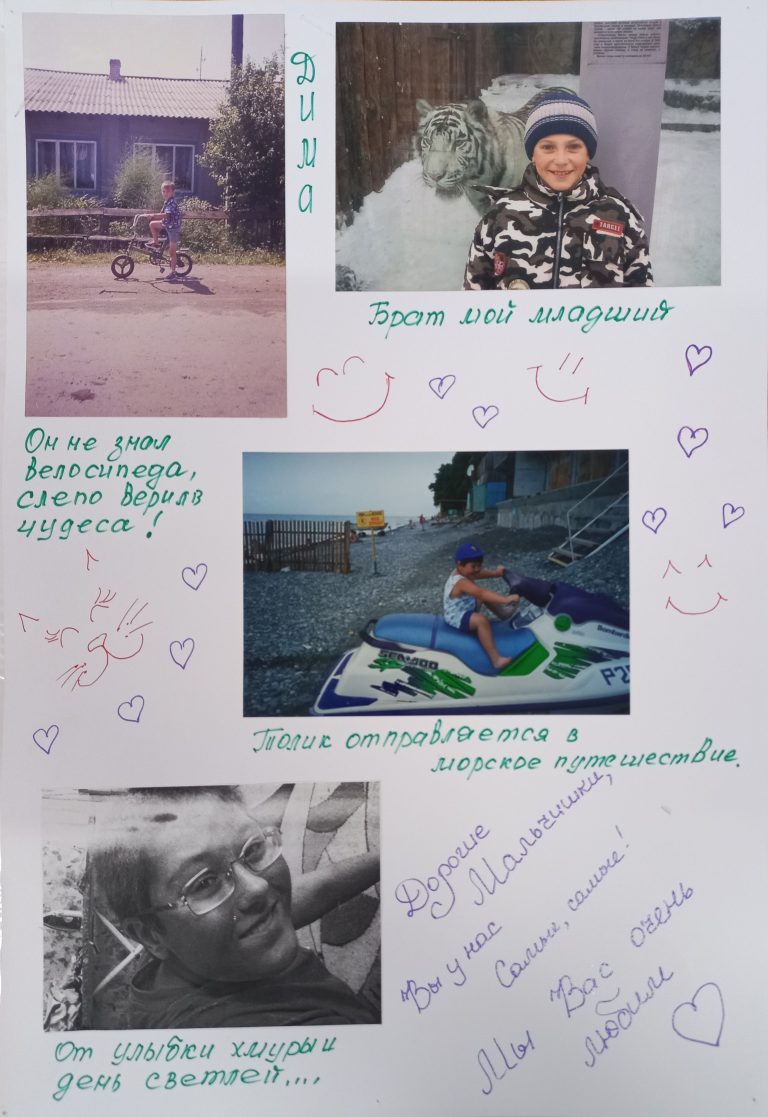 Дима
TARGET
Брат мой младший
Он не знал
велосипеда,
слепо верил в
чудеса!
SEADOO
Bombardier
P2
Толик отправляется в
морское путешествие.
Дорогие
Мальчишки,
Вы у нас
Самые, самые!
Мы Вас очень
любим
От улыбки хмурый
день светлей....